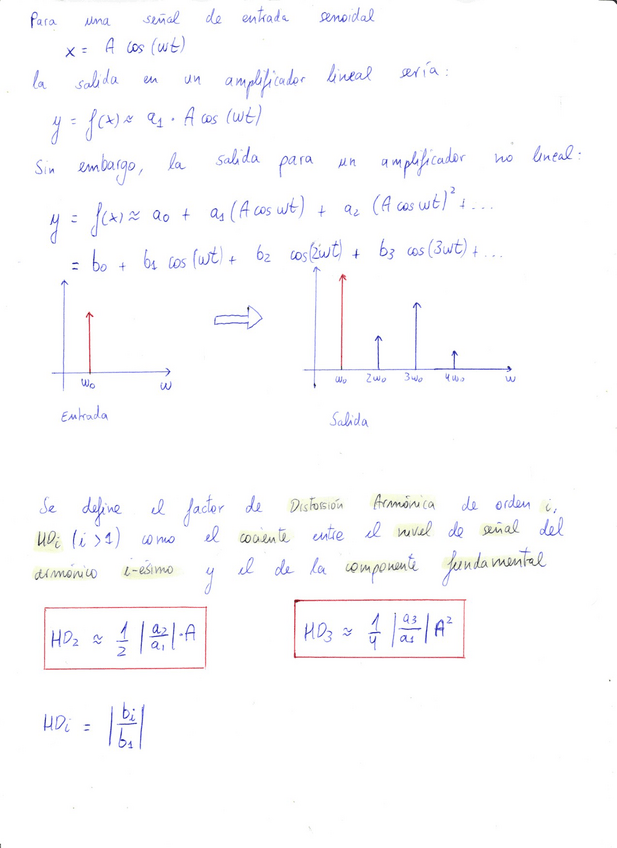 Para una señal de entrada senoidal
x = A cos(wt)
la salida en un amplificador lineal sería:
y = f(x) ≈ a₁ · A cos(wt)
Sin embargo, la salida para un amplificador no lineal:
y = f(x) ≈ a₀ + a₁(A cos wt) + a₂ (A cos wt)² + ...
= b₀ + b₁ cos(wt) + b₂ cos(2wt) + b₃ cos(3wt) + ...
w₀ w
w₀ 2w₀ 3w₀ 4w₀ w
Entrada
Salida
Se define el factor de Distorsión Armónica de orden i,
HDᵢ (i>1) como el cociente entre el nivel de señal del
armónico i-ésimo y el de la componente fundamental
HD₂ ≈ 1/2 |a₂/a₁| · A
HD₃ ≈ 1/4 |a₃/a₁| A²
HDᵢ = |bᵢ/b₁|